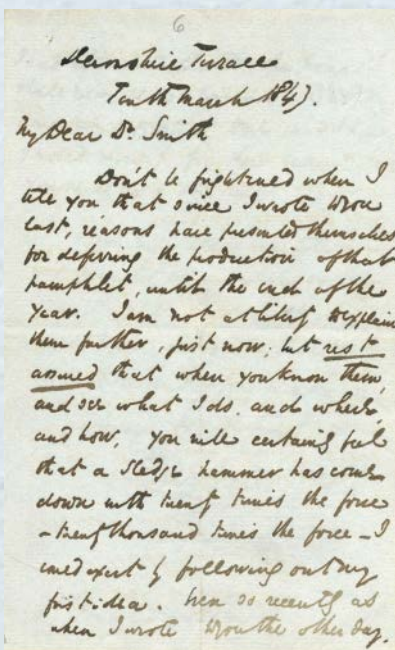 6
Devonshire Terrace
Tenth March 1843.
My Dear Dr. Smith
Don't be frightened when I
tell you that since I wrote to you
last, reasons have presented themselves
for deferring the production of that
pamphlet, until the end of the
year. I am not at liberty to explain
them further, just now; but rest
assured that when you know them,
and see what I do, and where,
and how, you will certainly feel
that a Sledge hammer has come
down with twenty times the force
- twenty thousand times the force - I
could exert by following out my
first idea. Even so recently as
when I wrote to you the other day,